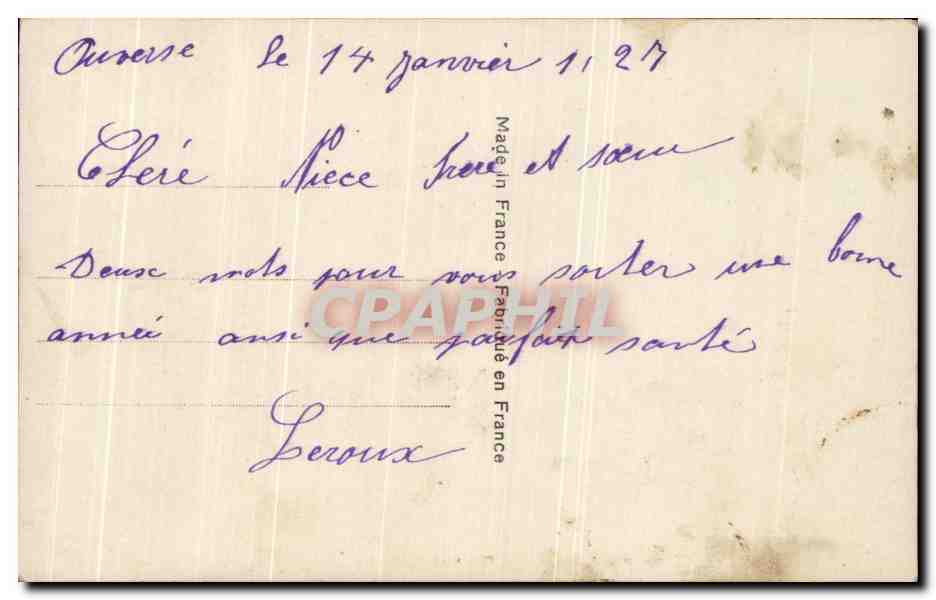 Auverse le 14 Janvier 1, 27
Chéré Nièce frere et sœur
Deuse mots pour vous soiter une bonne
année ansi que parfait santé
Leroux
Made in France - Fabriqué en France
CPAPHIL